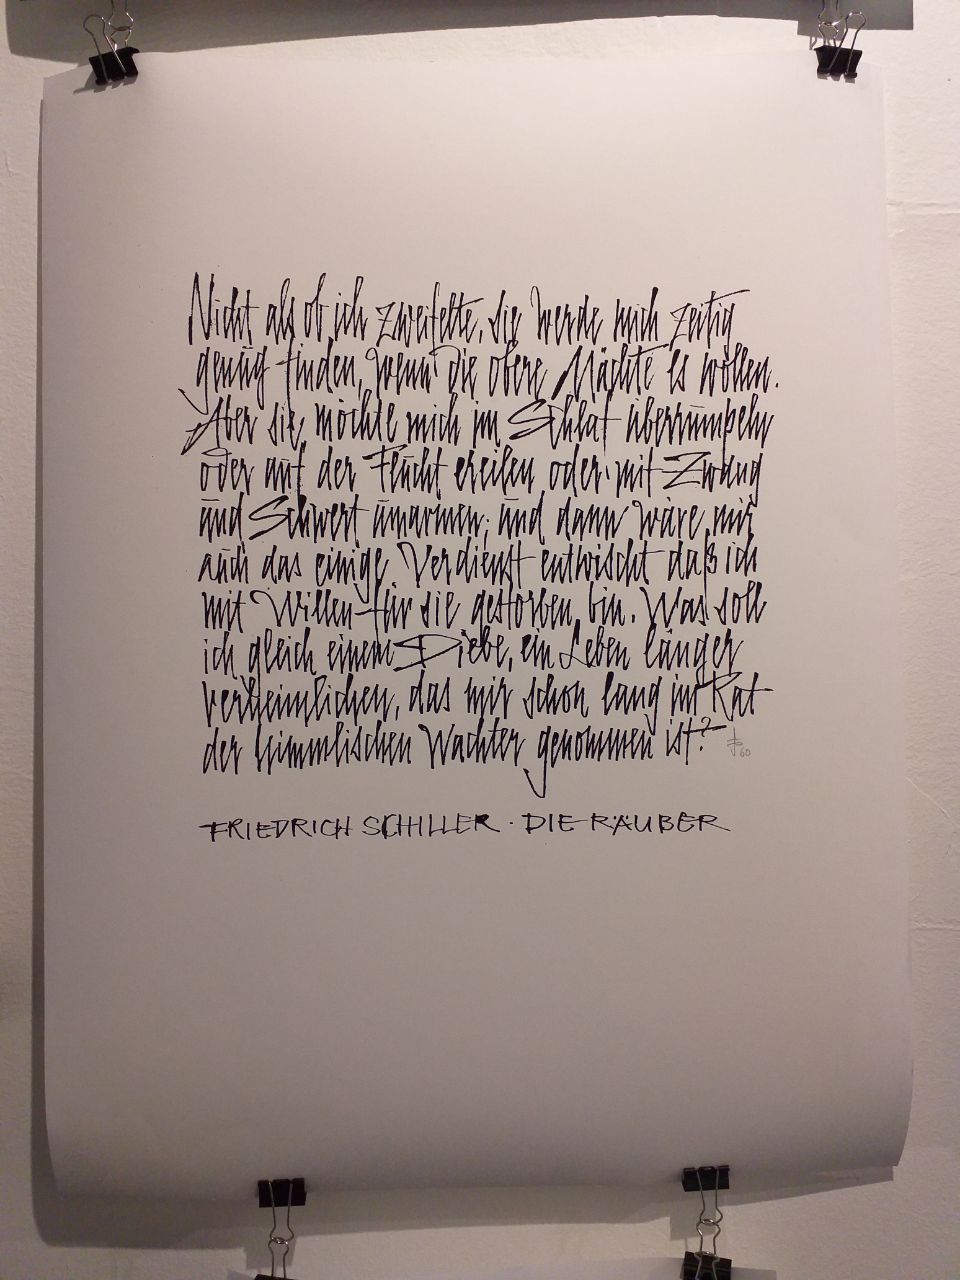 Nicht als ob ich zweifelte, sie werde mich zeitig
genug finden, wenn die obere Mächte es wollen.
Aber sie möchte mich im Schlaf überrumpeln
oder auf der Flucht ereilen oder mit Zwang
und Schwert umarmen; und dann wäre mir
auch das einige Verdienst entwischt daß ich
mit Willen für sie gestorben bin. Was soll
ich gleich einem Diebe, ein Leben länger
verheimlichen, das mir schon lang im Rat
der himmlischen Wächter genommen ist?
60
FRIEDRICH SCHILLER · DIE RÄUBER